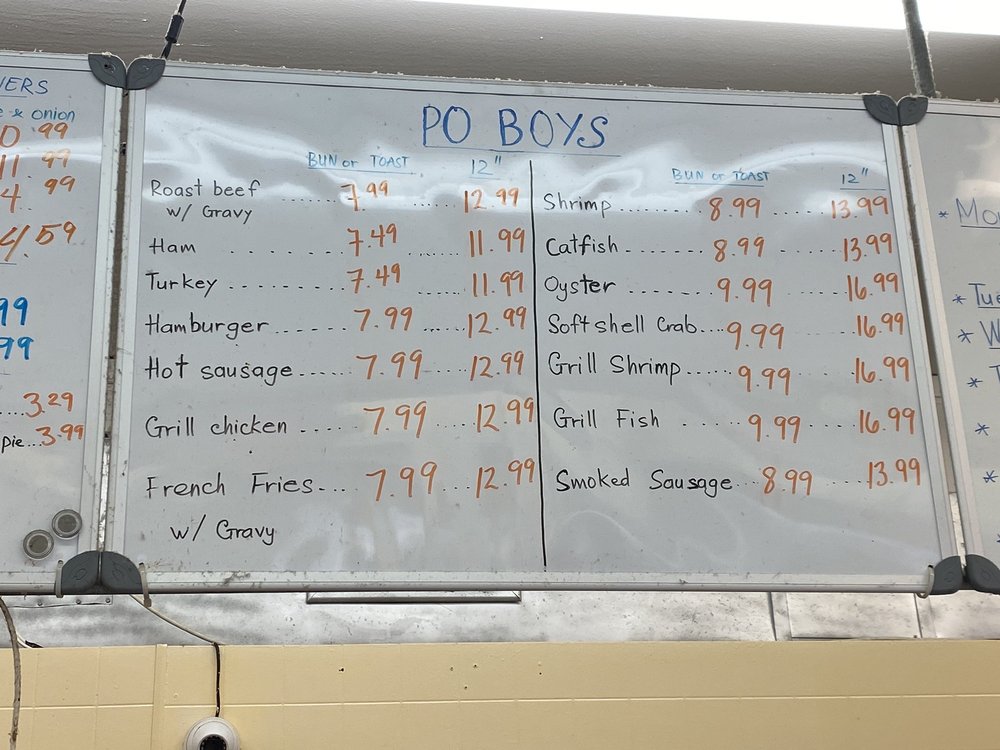 & onion
0.99
11 99
4. 99
4.59
99
99
....3.29
pie...3.99
PO BOYS
BUN or TOAST 12"
Roast beef ...... 7.99 ..... 12.99
w/ Gravy
Ham ........ 7.49 ...... 11.99
Turkey ........ 7.49 ...... 11.99
Hamburger ...... 7.99 ..... 12.99
Hot sausage ...... 7.99 .... 12.99
Grill chicken ..... 7.99 .... 12.99
French Fries.... 7.99 ... 12.99
w/ Gravy
BUN or TOAST 12"
Shrimp ......... 8.99 ..... 13.99
Catfish ........ 8.99 ..... 13.99
Oyster ........ 9.99 ..... 16.99
Softshell Crab.... 9.99 ..... 16.99
Grill Shrimp..... 9.99 ..... 16.99
Grill Fish ....... 9.99 ..... 16.99
Smoked Sausage ... 8.99 ..... 13.99